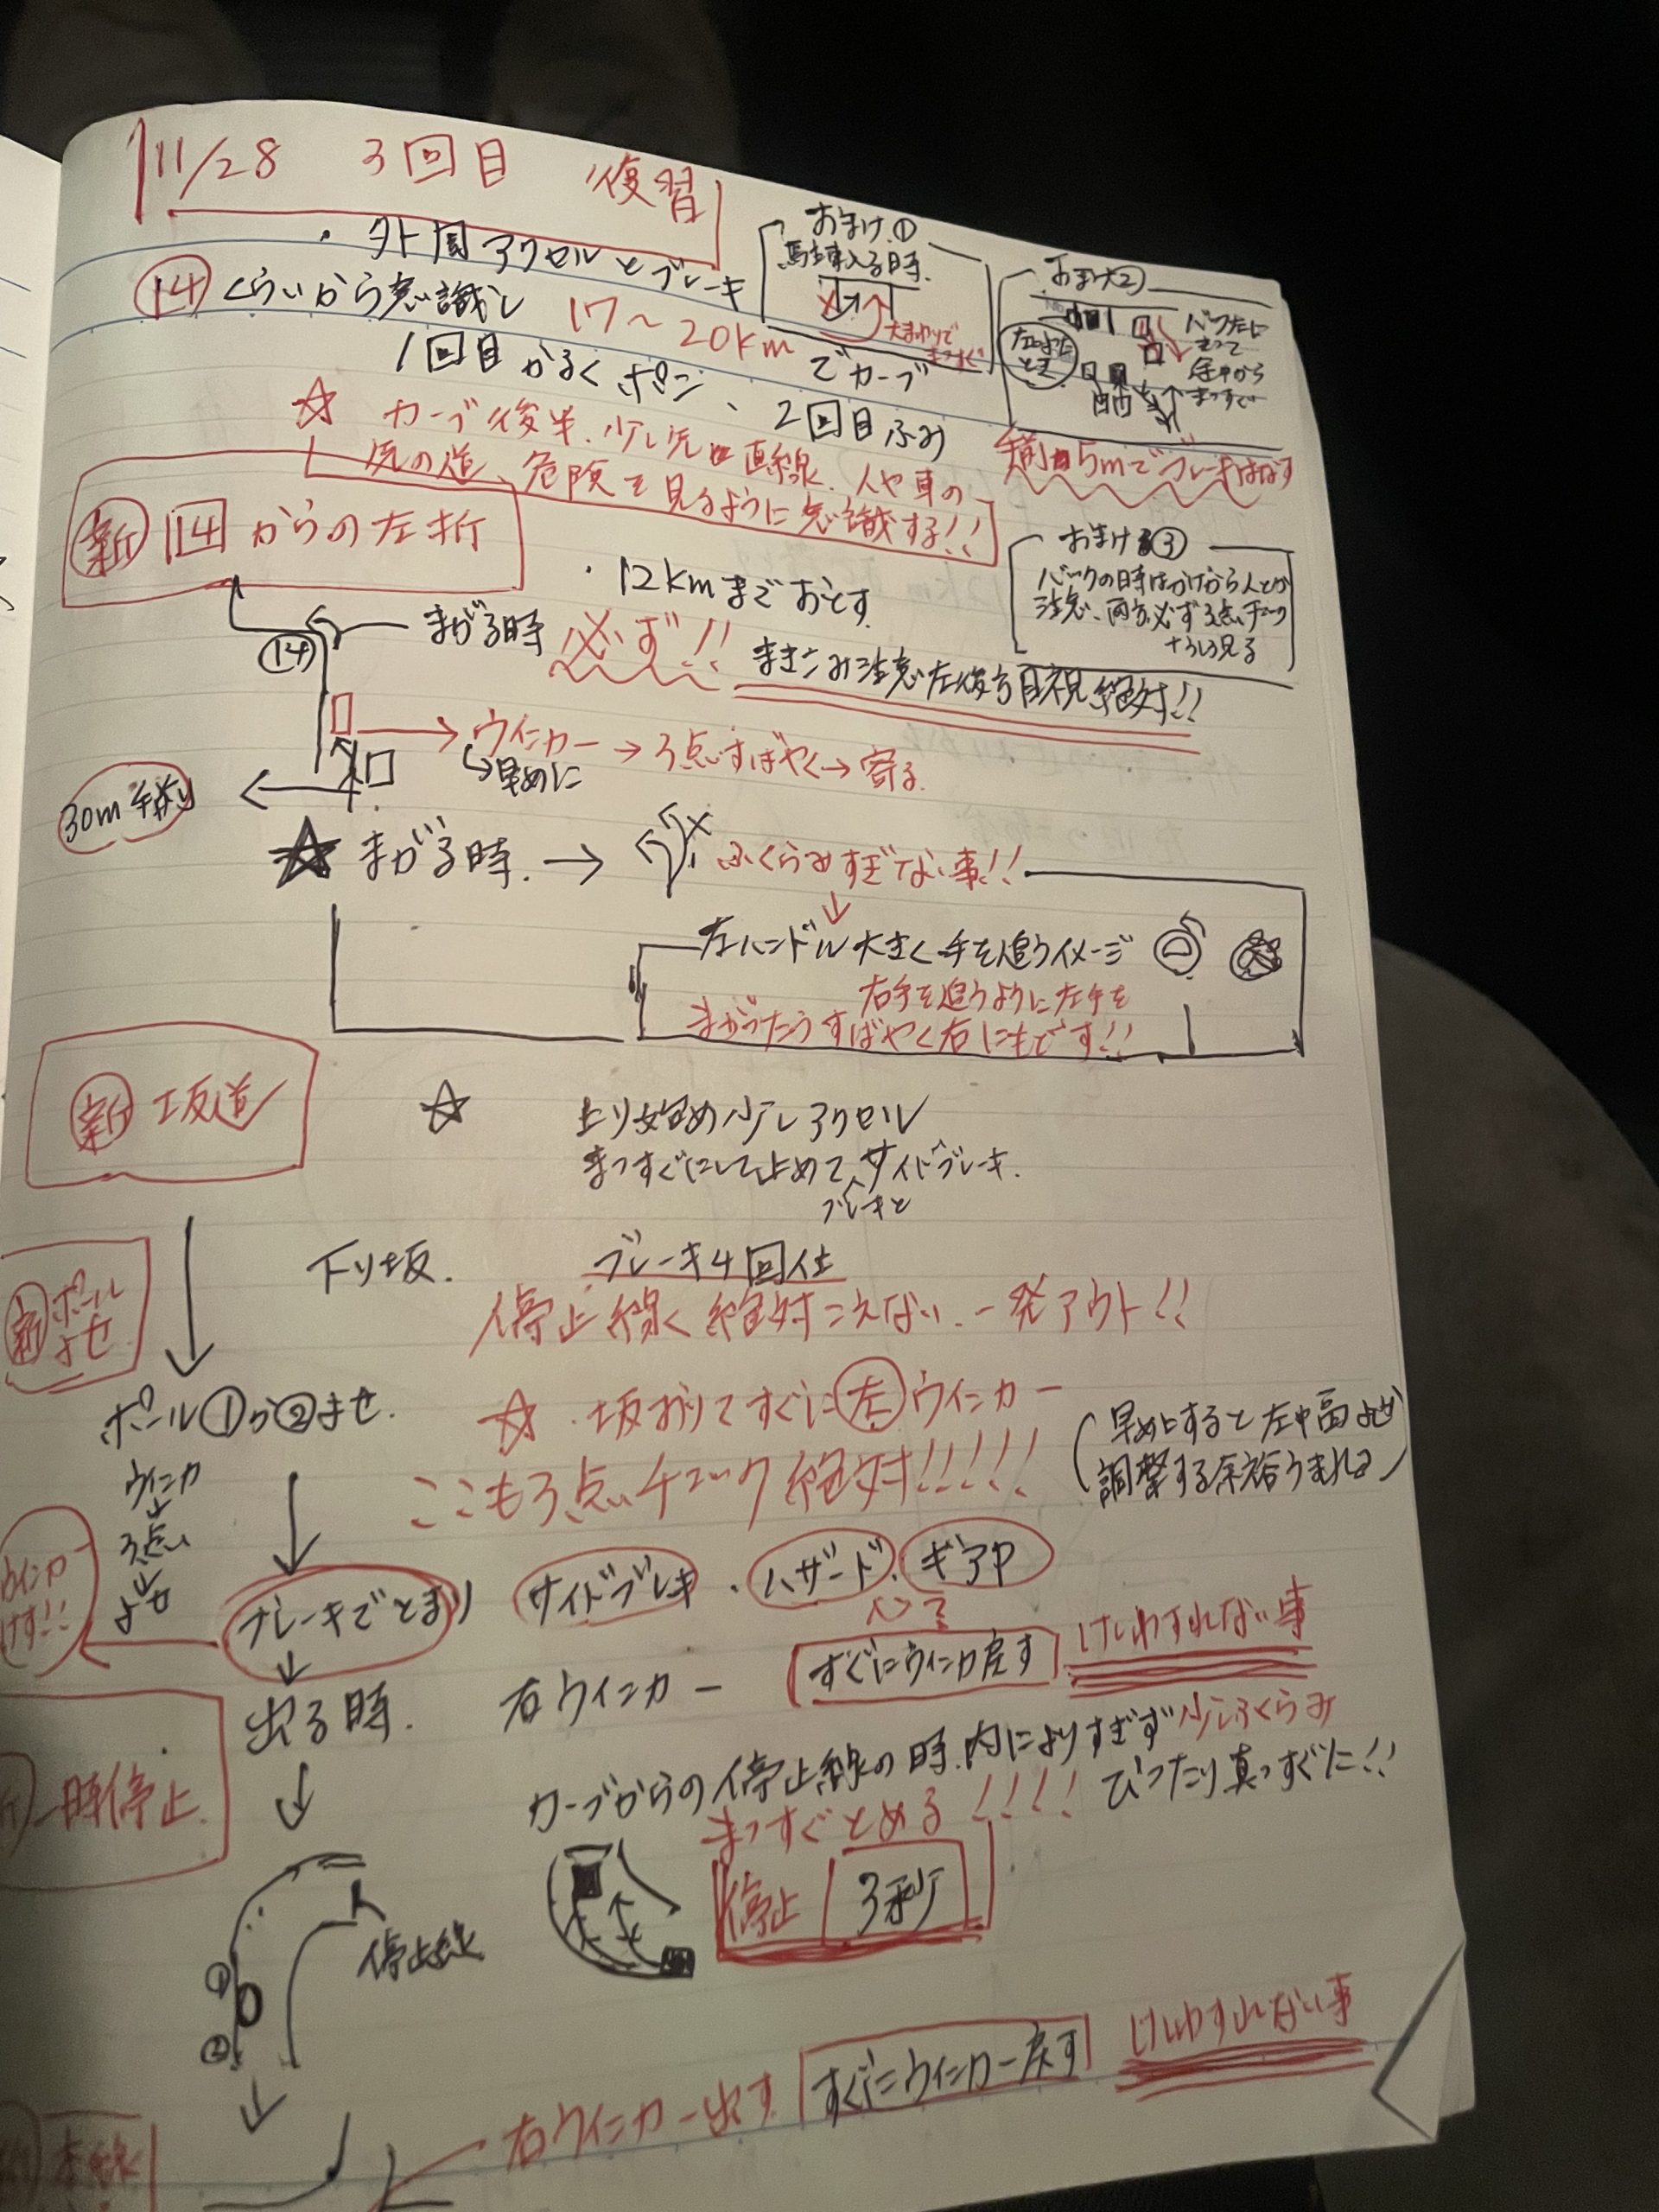 11/28 3回目 復習
・外周アクセルとブレーキ
⑭くらいから意識し 17〜20km でカーブ
1回目かるくポン、2回目ふみ
☆ カーブ後半、少し先に直線、人や車の
先の道、危険を見るように意識する!!
おまけ①
入る時
大まわりで
まっすぐ
おまけ②
左
とき
まって
途中から
まっすぐ
5mでブレーキはなす
おまけ③
バックの時はかげから人とか
注意、両方必ず3点チェック
+うしろ見る
新 14からの左折
・12kmまでおとす
⑭
まがる時 必ず!! まきこみ注意左後方目視絶対!!
→ ウインカー → 3点すばやく → 寄る
早めに
30m手前
★ まがる時. → ふくらみすぎない事!!
↓
左ハンドル大きく手を追うイメージ
右手を追うように左手を
まがったらすばやく右にもどす!!
新 坂道
☆ 上り始め少しアクセル
まっすぐにして止めてサイドブレーキ.
ブレーキと
新 ポール
よせ
下り坂. ブレーキ4回仕
停止線 絶対こえない. 一発アウト!!
ポール①か②ませ.
☆ ・坂おりてすぐに左ウインカー
ここも3点チェック絶対!!!!!
早めにすると左幅よせ
調整する余裕うまれる
ウインカ
↓
3点
↓
よせ
ウインカ
けす!!
ブレーキでとまり サイドブレーキ・ハザード・ギアP
↓
出る時. 右ウインカー すぐにウインカ戻す けしわすれない事
↓
一時停止
カーブからの停止線の時、内によりすぎず少しふくらみ
まっすぐとめる!!!! ぴったり真っすぐに!!
停止 3秒
停止線
①
②
↓
右ウインカー出す. すぐにウインカー戻す けしわすれない事
本線